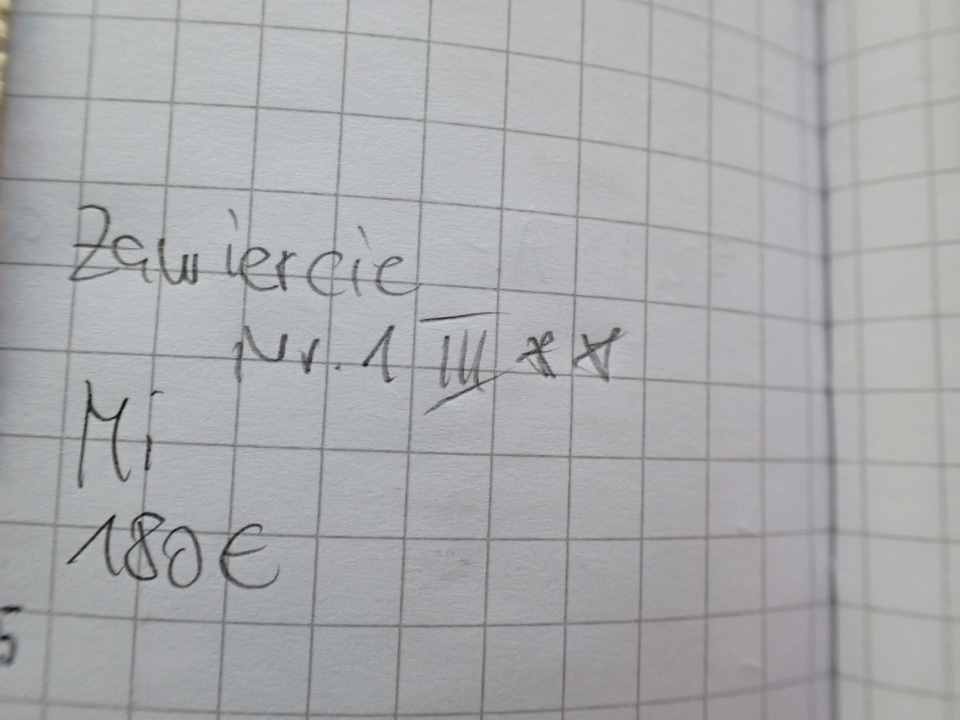 Zawiercie
Nr. 1 III **
Mi
180€
5